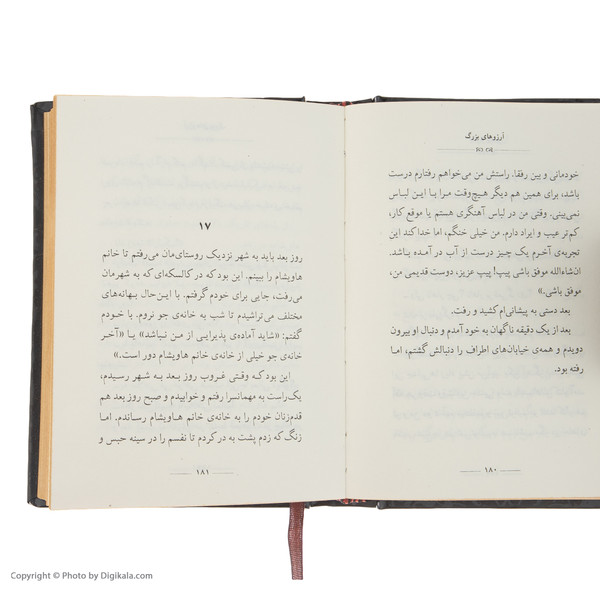 آرزوهای بزرگ
خودمانی و بین رفقا. راستش من می‌خواهم رفتارم درست
باشد، برای همین هم دیگر هیچ‌وقت مرا با این لباس
نمی‌بینی. وقتی من در لباس آهنگری هستم یا موقع کار،
کم‌تر عیب و ایراد دارم. من خیلی خنگم، اما خدا کند این
تجربه‌ی آخرم یک چیز درست از آب در آمده باشد.
ان‌شاءالله موفق باشی پیپ! پیپ عزیز، دوست قدیمی من،
موفق باشی.»
بعد دستی به پیشانی‌ام کشید و رفت.
بعد از یک دقیقه ناگهان به خود آمدم و دنبال او بیرون
دویدم و همه‌ی خیابان‌های اطراف را دنبالش گشتم، اما
رفته بود.
۱۸۰
۱۷
روز بعد باید به شهر نزدیک روستای‌مان می‌رفتم تا خانم
هاویشام را ببینم. این بود که در کالسکه‌ای که به شهرمان
می‌رفت، جایی برای خودم گرفتم. با این‌حال بهانه‌های
مختلف می‌تراشیدم تا شب به خانه‌ی جو نروم. با خودم
گفتم: «شاید آماده‌ی پذیرایی از من نباشد» یا «آخر
خانه‌ی جو خیلی از خانه‌ی خانم هاویشام دور است.»
این بود که وقتی غروب روز بعد به شهر رسیدم،
یک‌راست به مهمانسرا رفتم و خوابیدم و صبح روز بعد هم
قدم‌زنان خودم را به خانه‌ی خانم هاویشام رساندم. اما
زنگ که زدم پشت به در کردم تا نفسم را در سینه حبس و
۱۸۱
Copyright © Photo by Digikala.com